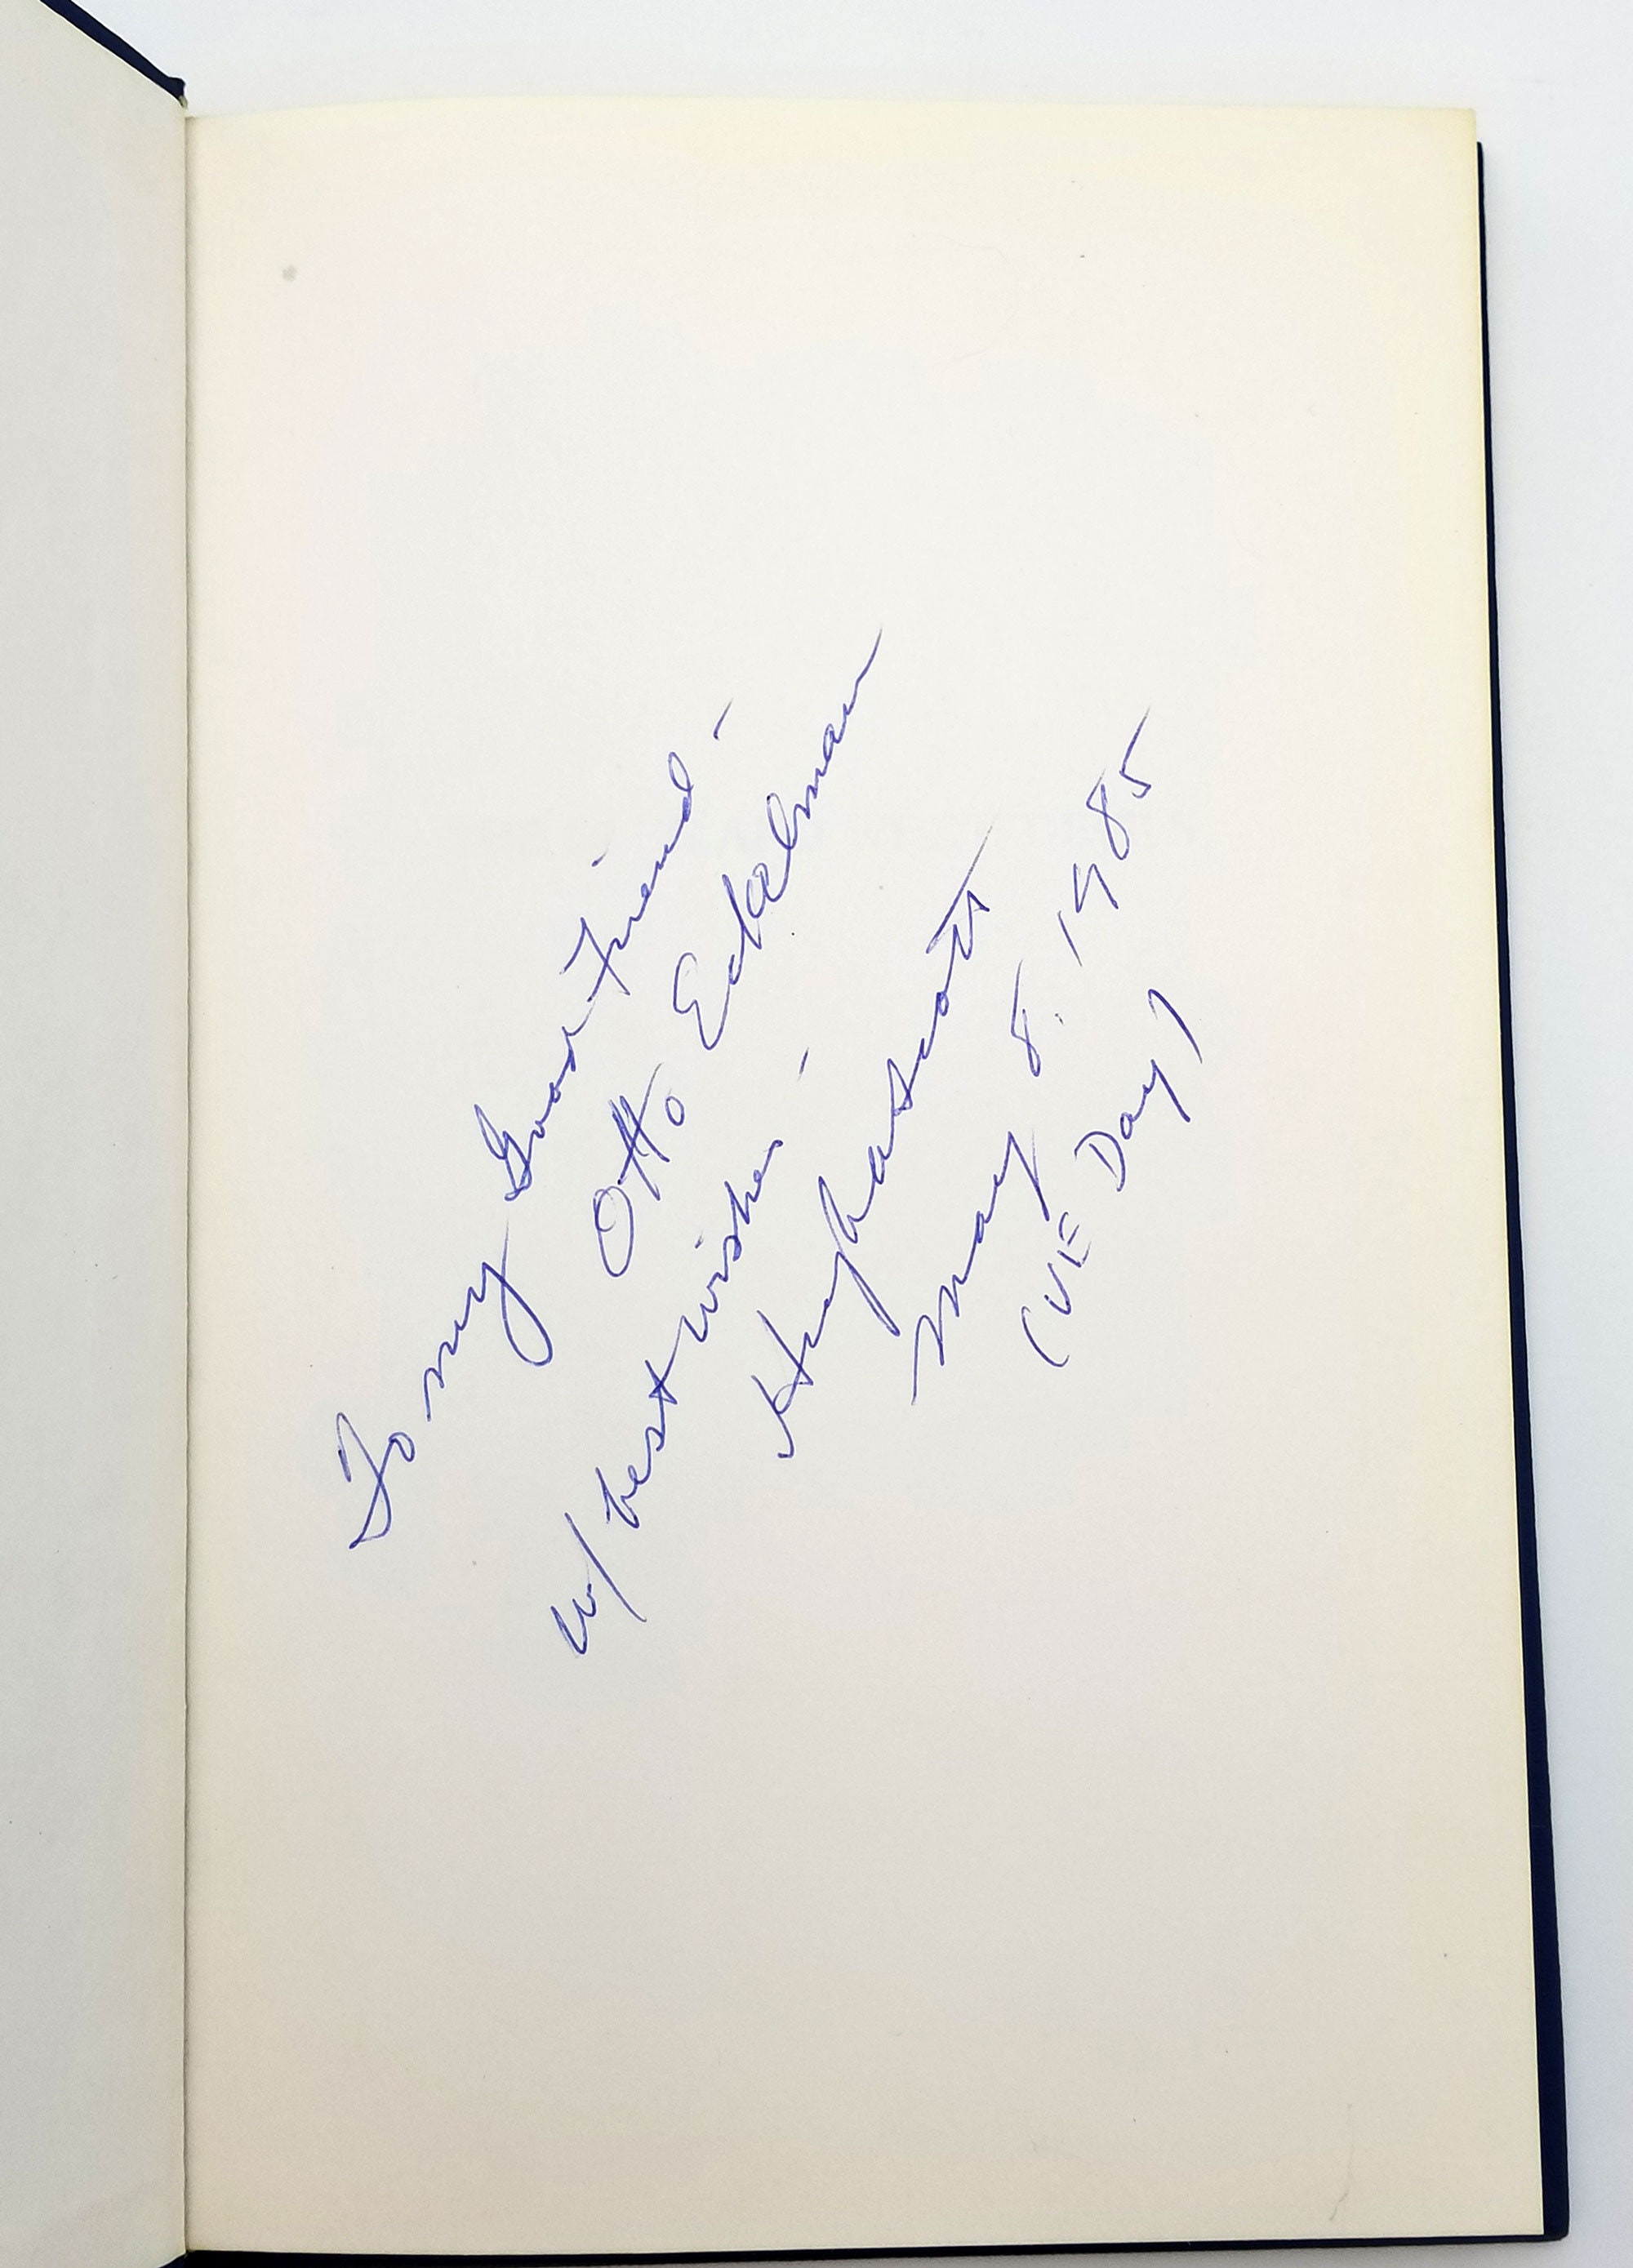 To my Good Friend -
Otto Edelman
w/ best wishes -
Hugh Scott
May 8, 1985
(VE Day)